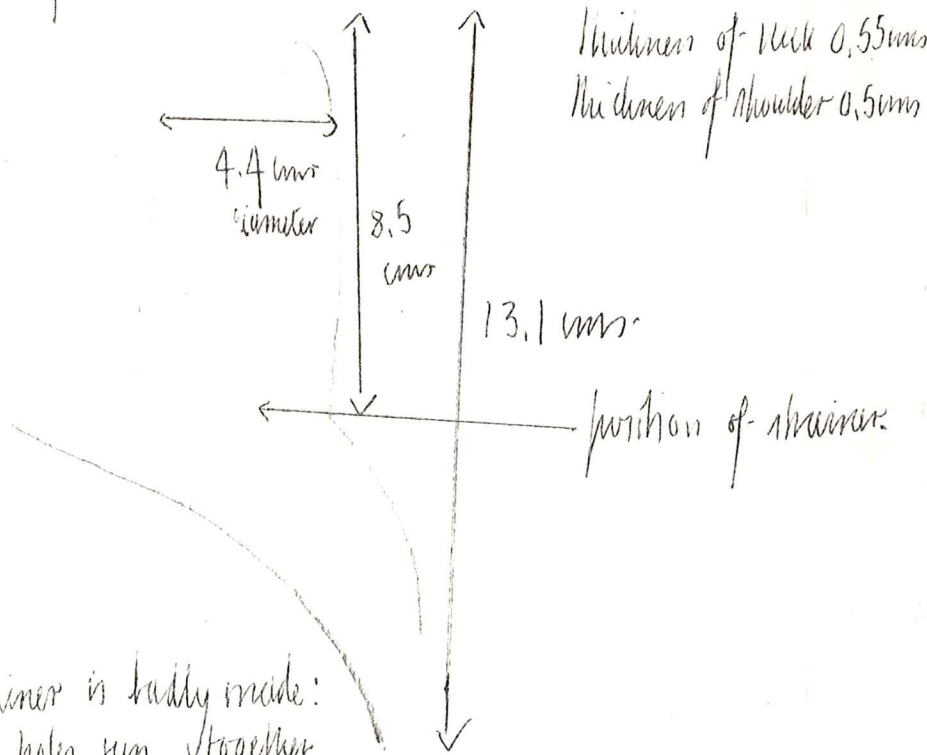 Thickness of neck 0,55cms
Thickness of shoulder 0,5cms
4.4 cms
diameter
8.5
cms
13.1 cms.
position of strainer.
iner is badly made:
holes run together